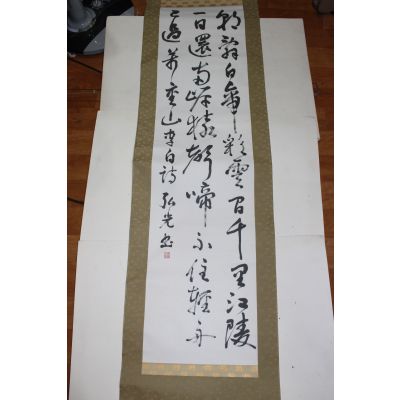 朝辭白帝彩雲間千里江陵
一日還兩岸猿聲啼不住輕舟
已過萬重山李白詩弘光書